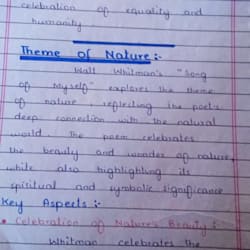 celebration of equality and
humanity
Theme of Nature :-
Walt Whitman's "Song
of Myself" explores the theme
of nature, reflecting the poet's
deep connection with the natural
world. The poem celebrates
the beauty and wonder of nature,
while also highlighting its
spiritual and symbolic significance
Key Aspects :-
• Celebration of Nature's Beauty :
Whitman celebrates the